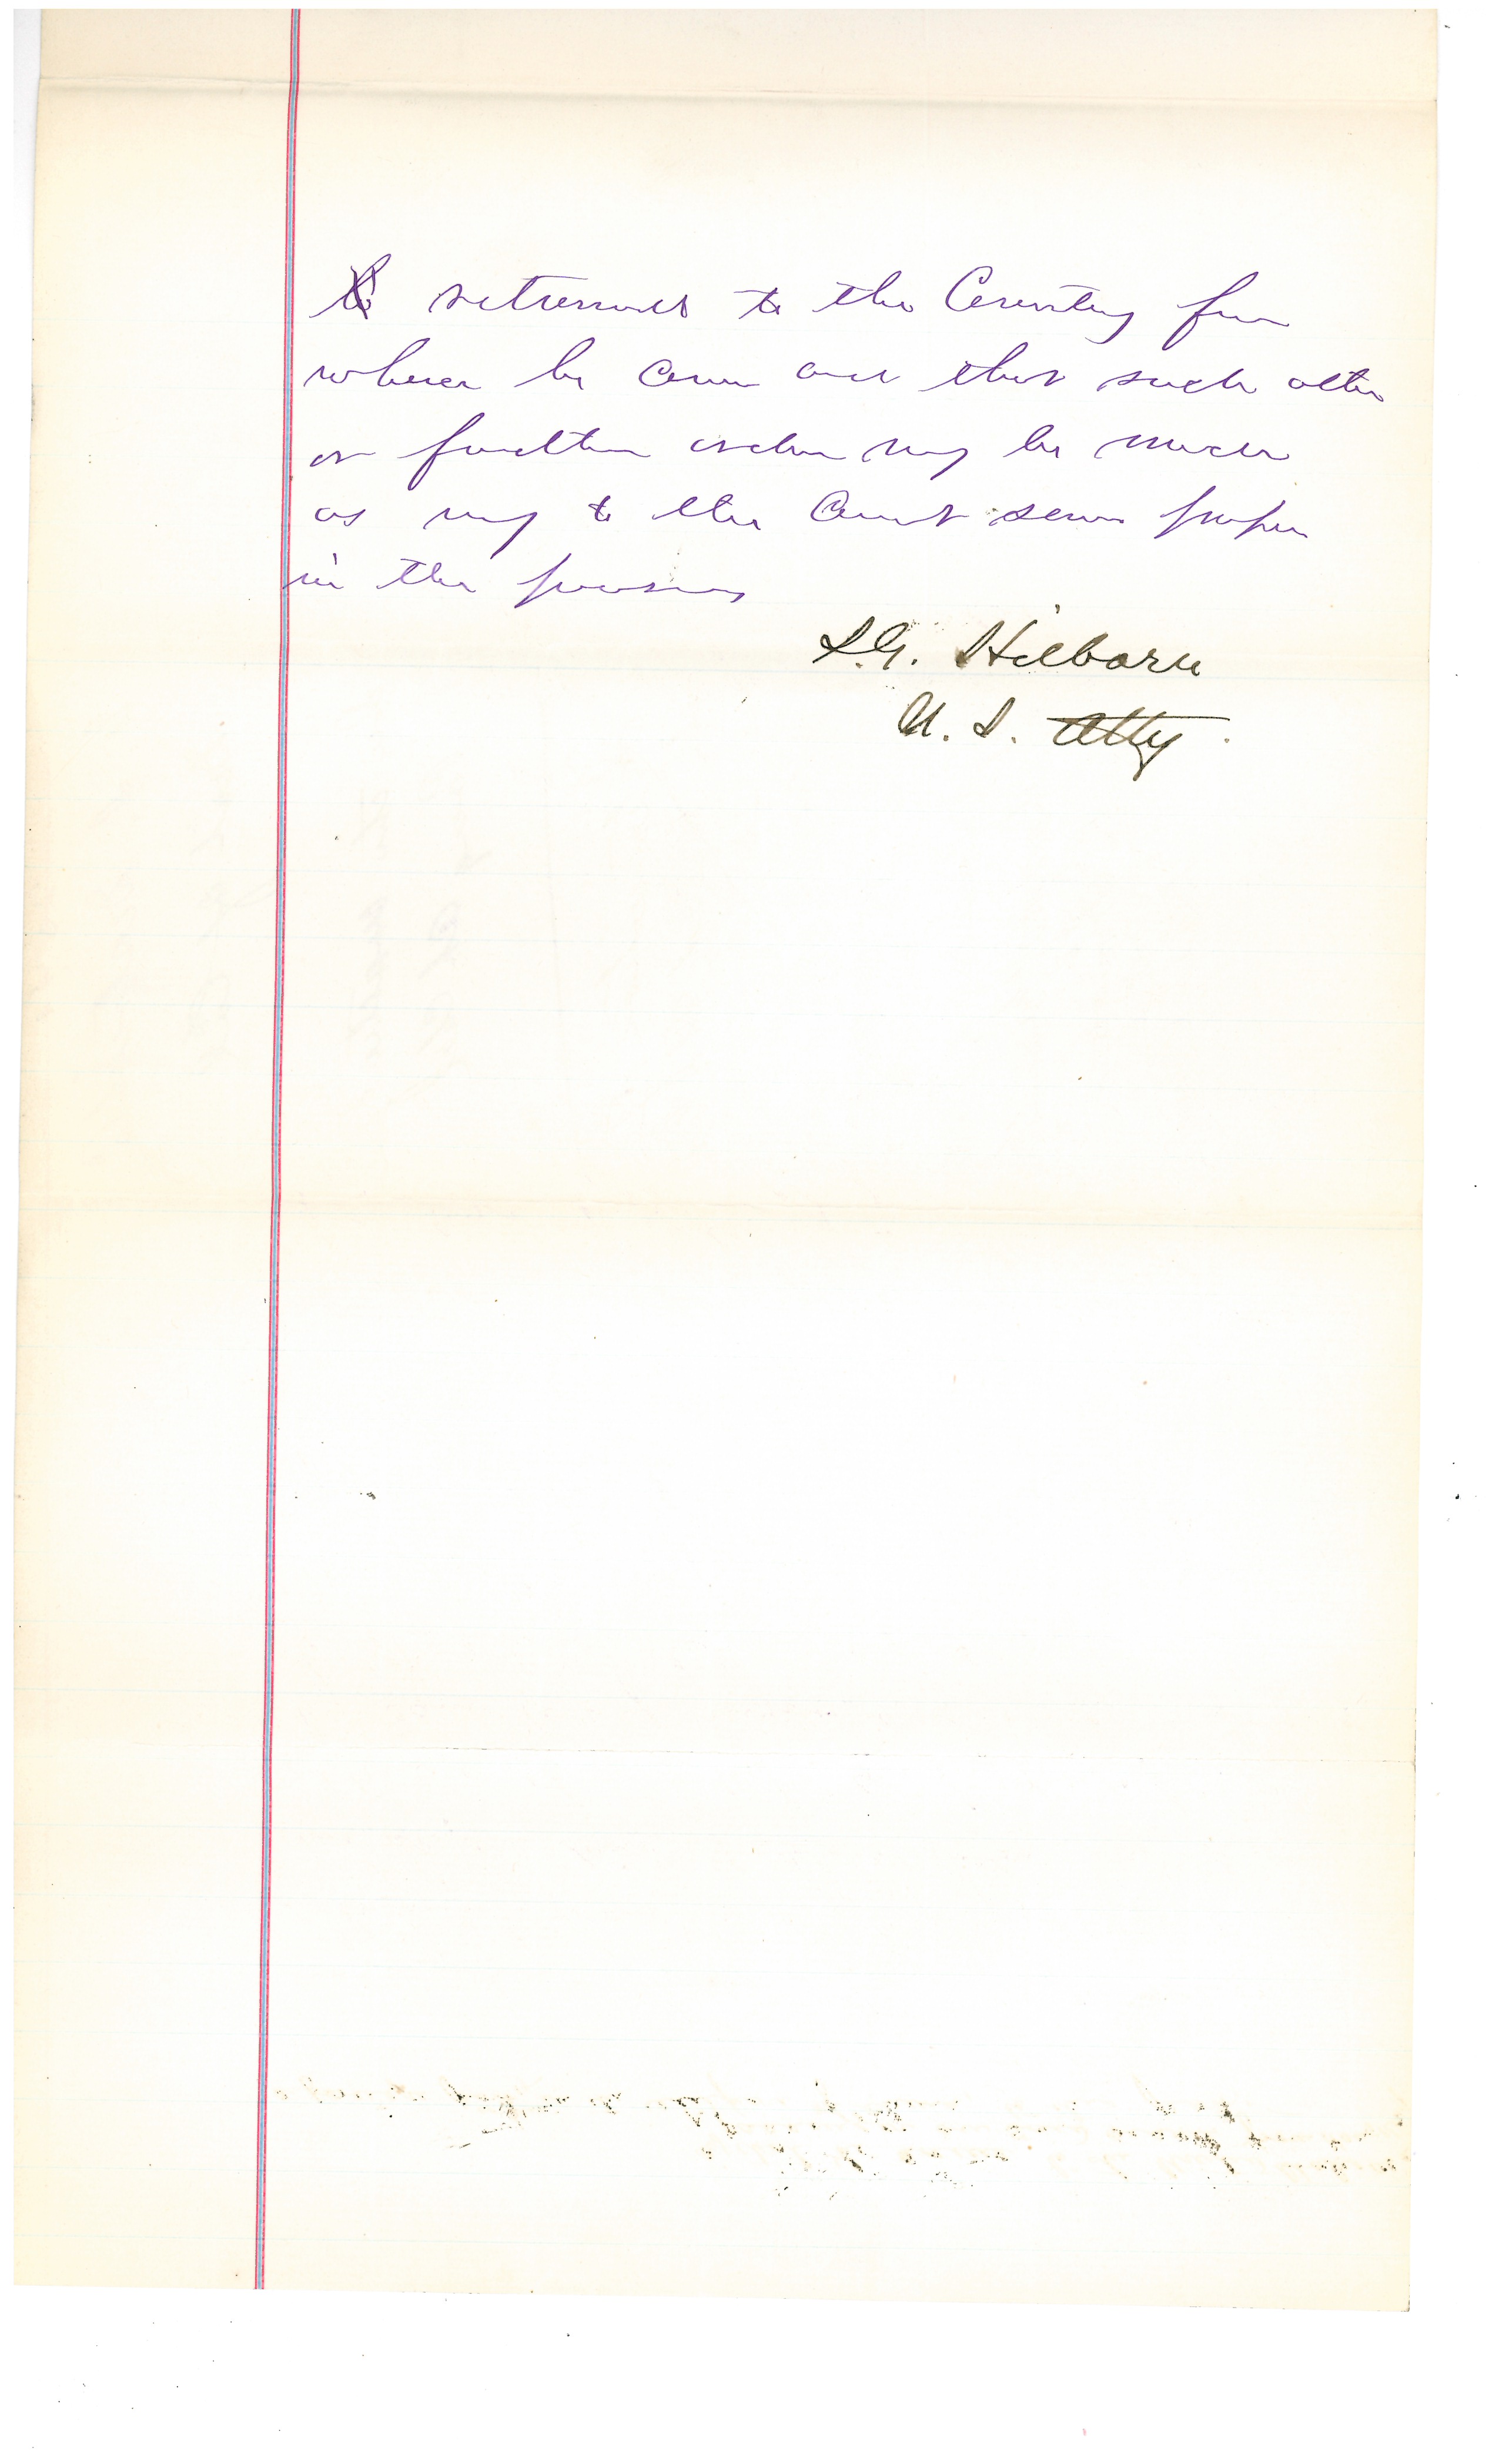 returned to the Country from
whence he came and that such other
or further order may be made
as may to the Court seem proper
in the premises
S.G. Hilborn
U. S. Atty.